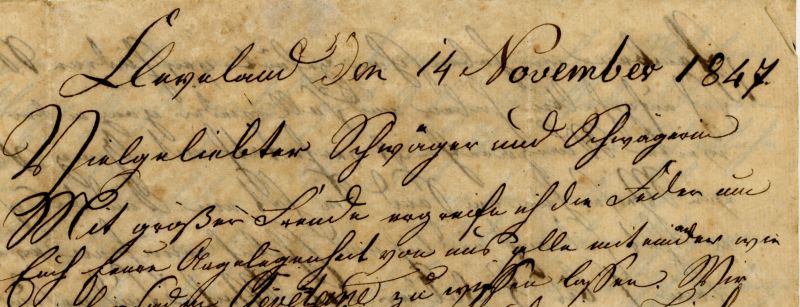 Cleveland den 14 November 1847.
Vielgeliebter Schwäger und Schwägerin
Mit großer Freude ergreife ich die Feder um
Euch Eeure Angelegenheit von uns alle mit einander wie
zu wissen lassen. Wir